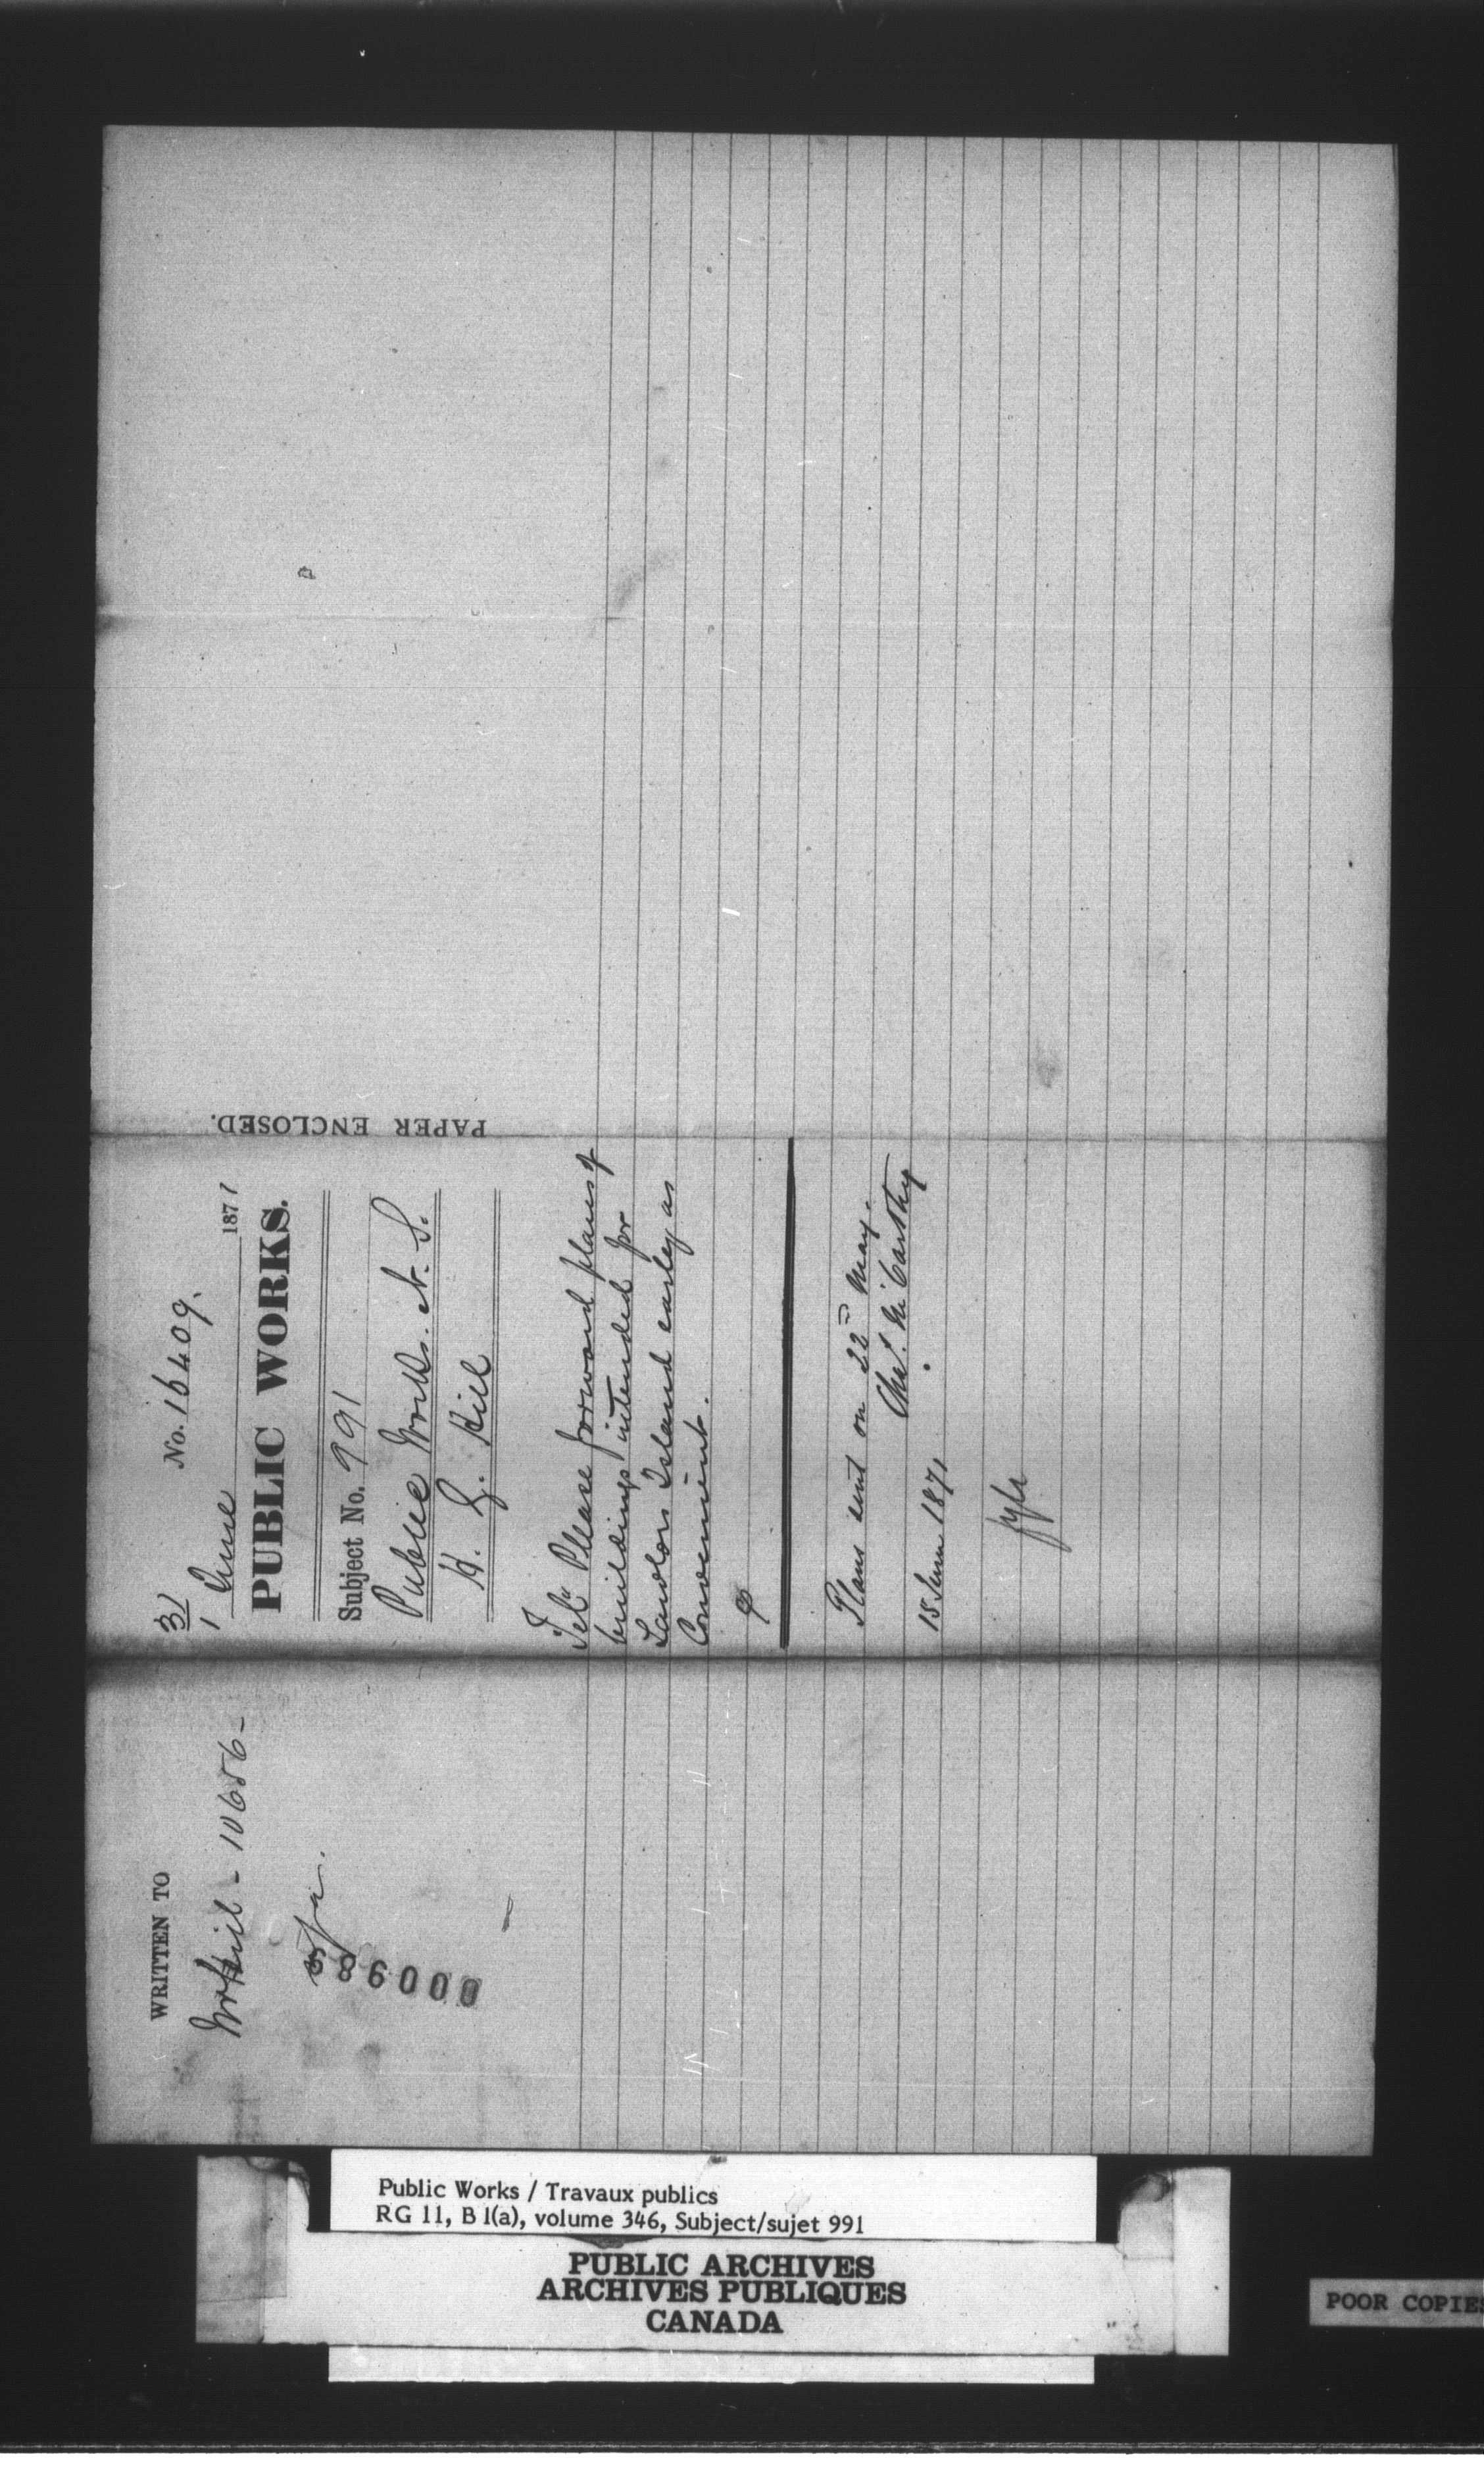 31
No. 16409.
1 June 1871
PUBLIC WORKS.
Subject No. 991
Public Works. N. S.
H. G. Hill
Tel: Please forward plans of
buildings intended for
Lawlors Island early as
Convenient.
Plans sent on 22nd May.
Chas. McCarthy
15 June 1871
PAPER ENCLOSED.
WRITTEN TO
Mr Hill - 10686-
000983
Public Works / Travaux publics
RG 11, B 1(a), volume 346, Subject/sujet 991
PUBLIC ARCHIVES
ARCHIVES PUBLIQUES
CANADA
POOR COPIES